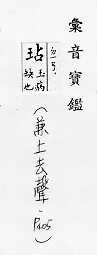 彙音寶鑑
玷 玉病
缺也
(兼上去聲, P205